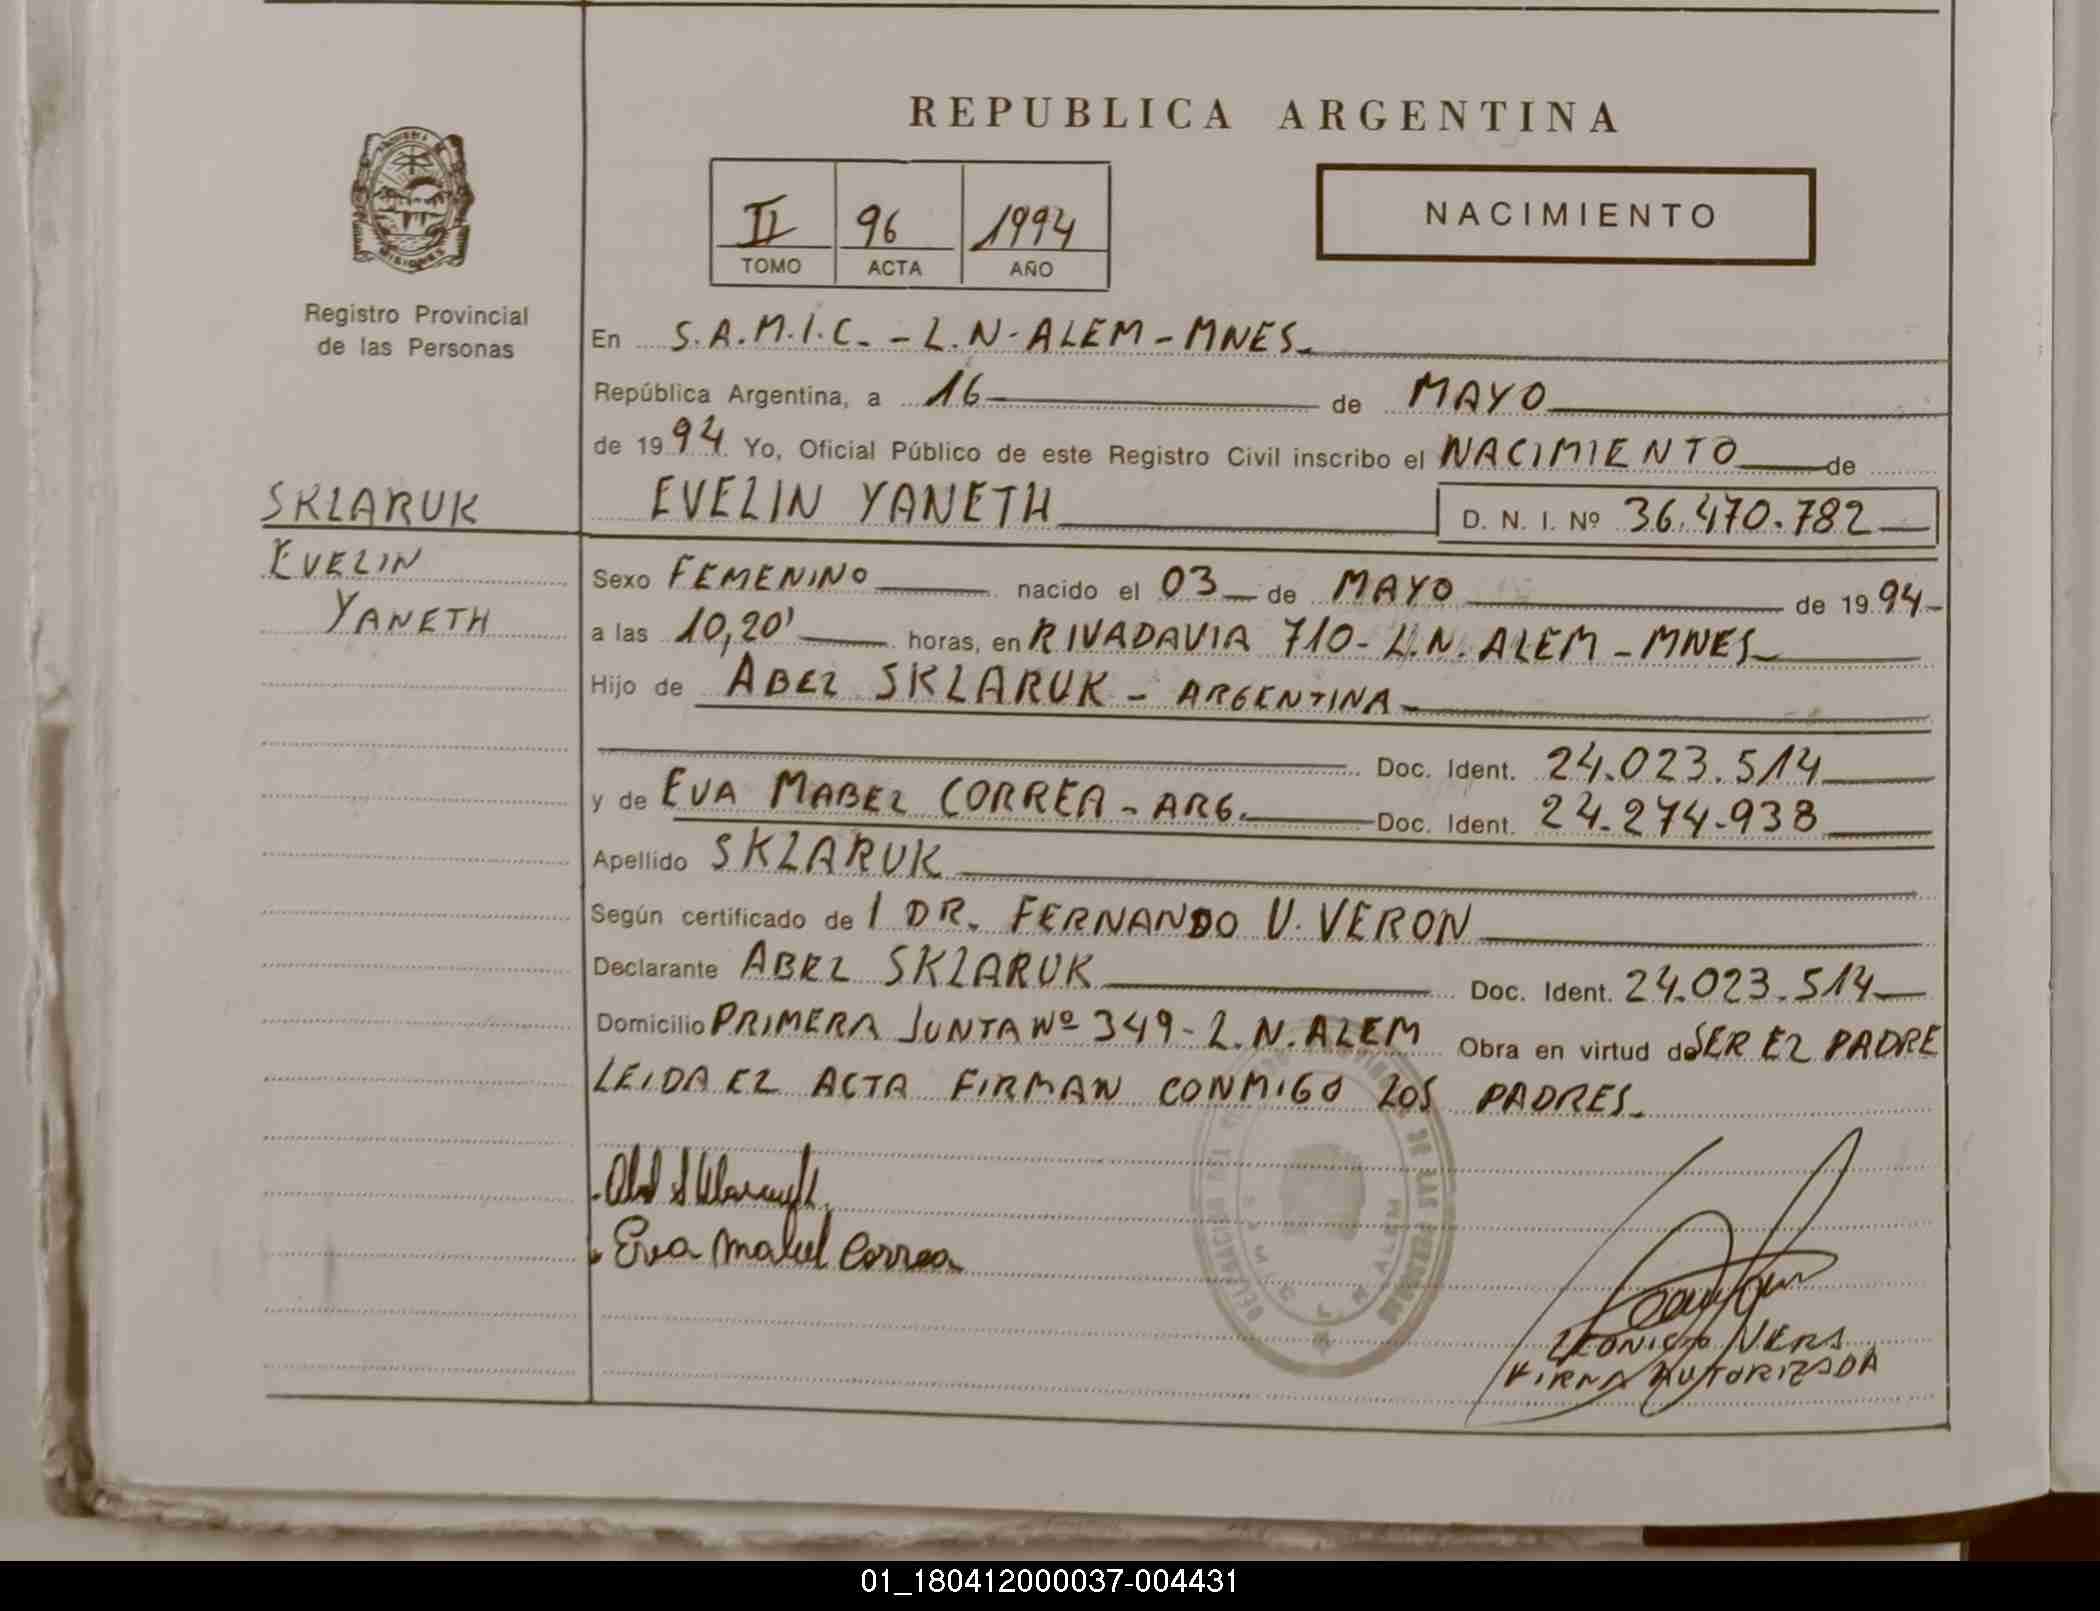 REPUBLICA ARGENTINA
II 96 1994
TOMO ACTA AÑO
NACIMIENTO
MISIONES
Registro Provincial
de las Personas
En S.A.M.I.C. - L.N-ALEM - MNES
República Argentina, a 16 de MAYO
de 1994 Yo, Oficial Público de este Registro Civil inscribo el NACIMIENTO de
SKLARUK EVELIN YANETH D. N. I. Nº 36.470.782
EVELIN
YANETH
Sexo FEMENINO nacido el 03 de MAYO de 1994
a las 10,20' horas, en RIVADAVIA 710 - L.N. ALEM - MNES
Hijo de ABEL SKLARUK - ARGENTINA
Doc. Ident. 24.023.514
y de EVA MABEL CORREA - ARG. Doc. Ident. 24.274.938
Apellido SKLARUK
Según certificado de l DR. FERNANDO V. VERON
Declarante ABEL SKLARUK Doc. Ident. 24.023.514
Domicilio PRIMERA JUNTA Nº 349 - L.N. ALEM Obra en virtud de SER EL PADRE
LEIDA EL ACTA FIRMAN CONMIGO LOS PADRES.
Abel Sklaruk
Eva Mabel Correa
FIRMA AUTORIZADA
01_180412000037-004431